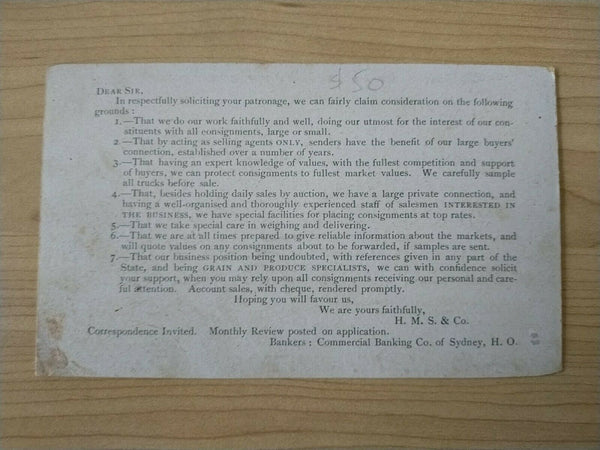 $50
DEAR SIR,
In respectfully soliciting your patronage, we can fairly claim consideration on the following
grounds :
1.—That we do our work faithfully and well, doing our utmost for the interest of our con-
stituents with all consignments, large or small.
2.—That by acting as selling agents ONLY, senders have the benefit of our large buyers'
connection, established over a number of years.
3.—That having an expert knowledge of values, with the fullest competition and support
of buyers, we can protect consignments to fullest market values. We carefully sample
all trucks before sale.
4.—That, besides holding daily sales by auction, we have a large private connection, and
having a well-organised and thoroughly experienced staff of salesmen INTERESTED IN
THE BUSINESS, we have special facilities for placing consignments at top rates.
5.—That we take special care in weighing and delivering.
6.—That we are at all times prepared to give reliable information about the markets, and
will quote values on any consignments about to be forwarded, if samples are sent.
7.—That our business position being undoubted, with references given in any part of the
State, and being GRAIN AND PRODUCE SPECIALISTS, we can with confidence solicit
your support, when you may rely upon all consignments receiving our personal and care-
ful attention. Account sales, with cheque, rendered promptly.
Hoping you will favour us,
We are yours faithfully,
H. M. S. & Co.
Correspondence Invited. Monthly Review posted on application.
Bankers : Commercial Banking Co. of Sydney, H. O.